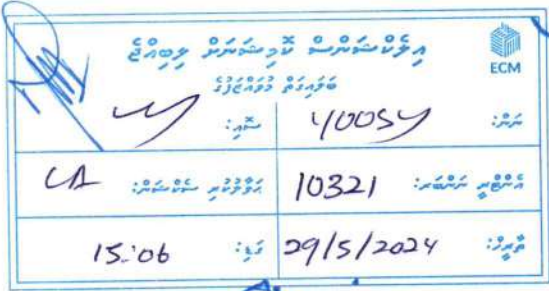 އިލެކްޝަންސް ކޮމިޝަނަށް ލިބިއްޖެ
ECM
ބަލައިގަތް މުވައްޒަފުގެ
ނަން: yoosy ސޮއި:
އެންޓްރީ ނަންބަރ: 10321 ޙަވާލުކުރި ސެކްޝަން: LA
ތާރީޚް: 29/5/2024 ގަޑި: 15:06